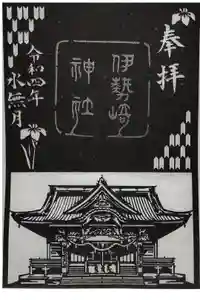 奉拝
伊勢崎
神社
令和四年
水無月